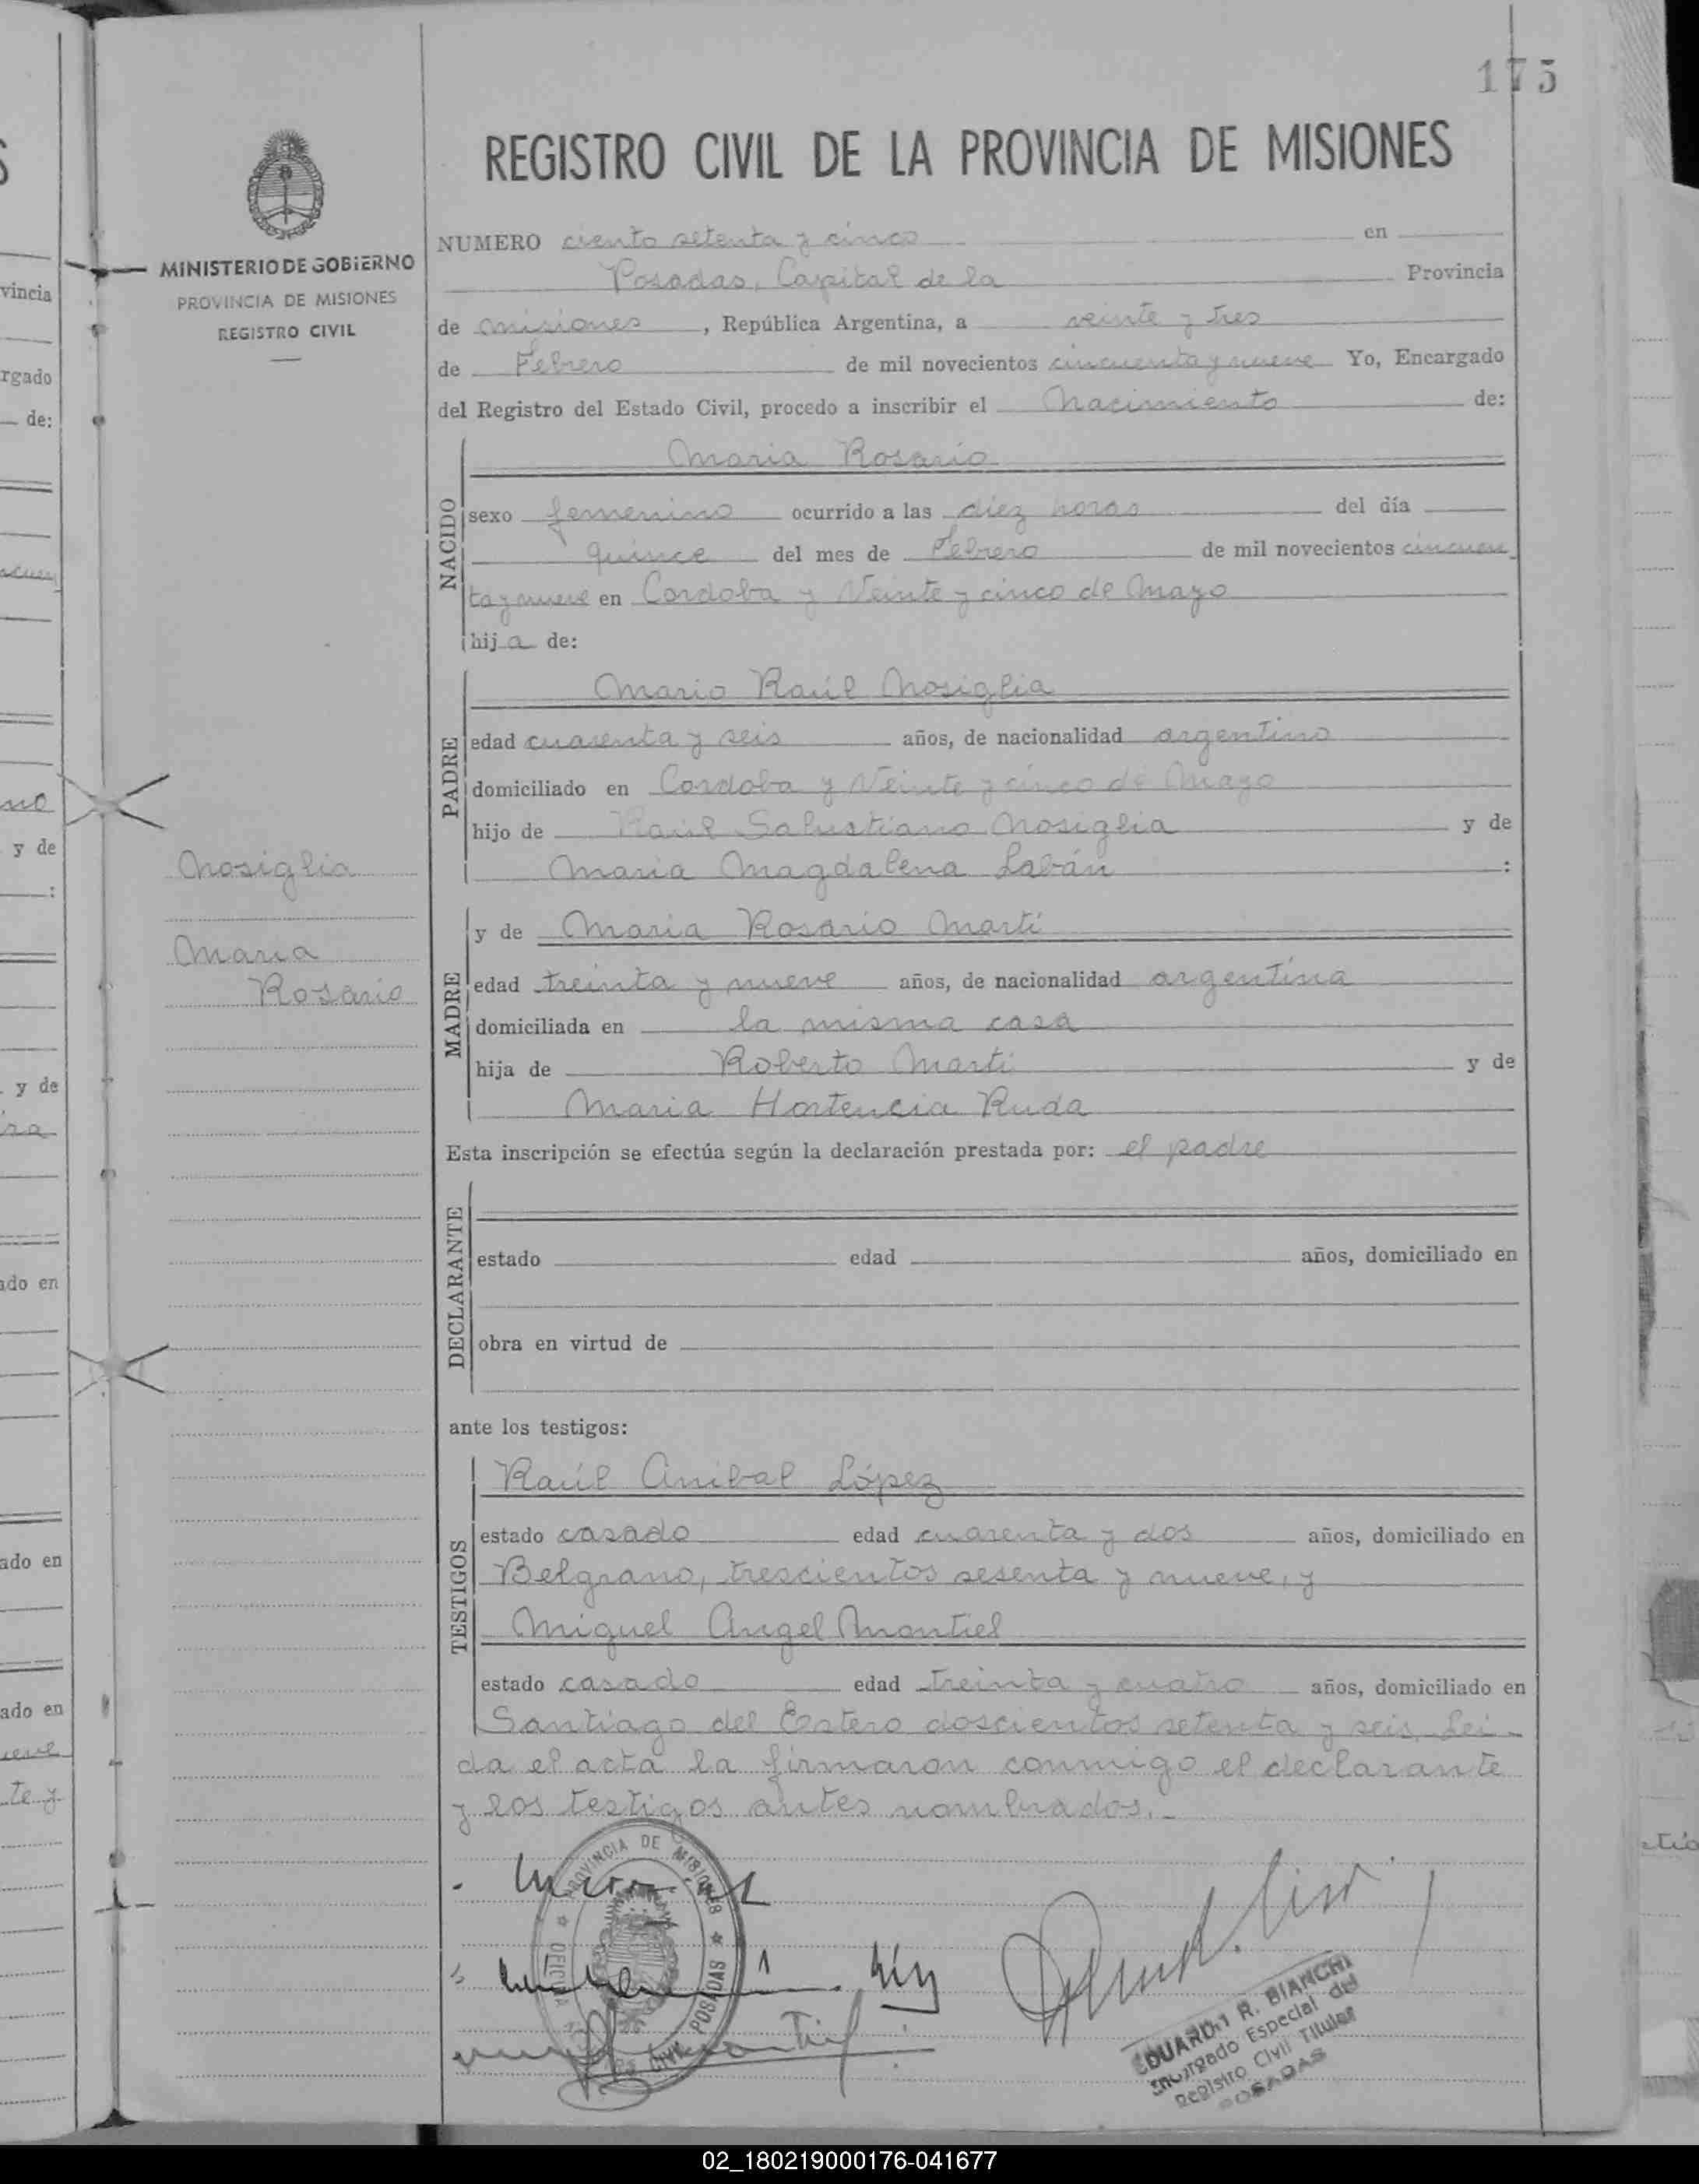 175
REGISTRO CIVIL DE LA PROVINCIA DE MISIONES
MINISTERIO DE GOBIERNO
PROVINCIA DE MISIONES
REGISTRO CIVIL
NUMERO ciento setenta y cinco en
Posadas, Capital de la Provincia
de Misiones, República Argentina, a veinte y tres
de Febrero de mil novecientos cincuenta y nueve Yo, Encargado
del Registro del Estado Civil, procedo a inscribir el Nacimiento de:
NACIDO
Maria Rosario
sexo femenino ocurrido a las diez horas del día
quince del mes de Febrero de mil novecientos cincuen
ta y nueve en Cordoba y Veinte y cinco de Mayo
hija de:
PADRE
Mario Raúl Nosiglia
edad cuarenta y seis años, de nacionalidad argentino
domiciliado en Cordoba y Veinte y cinco de Mayo
hijo de Raúl Salustiano Nosiglia y de
Maria Magdalena Labán :
Nosiglia
Maria
Rosario
MADRE
y de Maria Rosario Martí
edad treinta y nueve años, de nacionalidad argentina
domiciliada en la misma casa
hija de Roberto Martí y de
Maria Hortencia Ruda
Esta inscripción se efectúa según la declaración prestada por: el padre
DECLARANTE
estado edad años, domiciliado en
obra en virtud de
ante los testigos:
TESTIGOS
Raúl Anibal López
estado casado edad cuarenta y dos años, domiciliado en
Belgrano, trescientos sesenta y nueve, y
Miguel Angel Montiel
estado casado edad treinta y cuatro años, domiciliado en
Santiago del Estero doscientos setenta y seis. Lei-
da el acta la firmaron conmigo el declarante
y los testigos antes nombrados.-
PROVINCIA DE MISIONES
POSADAS
EDUARDO R. BIANCHI
Encargado Especial del
Registro Civil Titular
POSADAS
02_180219000176-041677